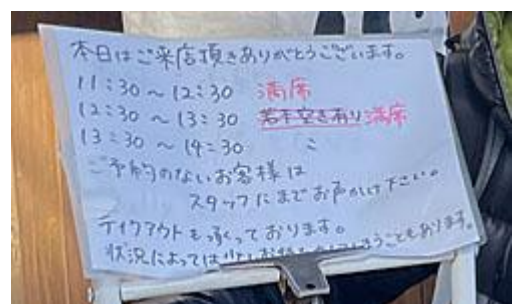 本日はご来店頂きありがとうございます。
11:30 ～ 12:30 満席
12:30 ～ 13:30 若干空きあり 満席
13:30 ～ 14:30
ご予約のないお客様は
スタッフにまでお声がけ下さい。
テイクアウトも承っております。
状況によっては少しお待
こともあります。